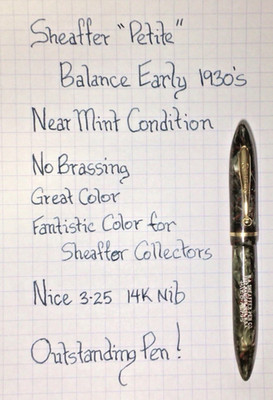 Sheaffer "Petite"
Balance Early 1930's
Near Mint Condition
No Brassing
Great Color
Fantistic Color for
Sheaffer Collectors
Nice 3-25 14K Nib
Outstanding Pen!